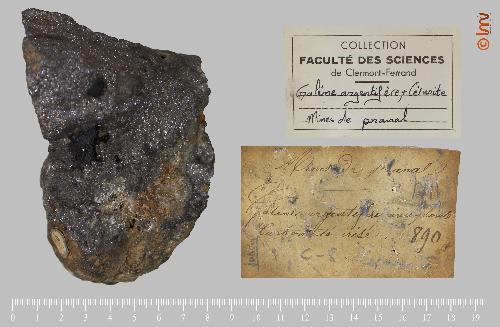 © lmv
COLLECTION
FACULTÉ DES SCIENCES
de Clermont-Ferrand
Galène argentifère + Cérusite
Mines de pranal
Mines de pranal
Galène argentifère avec plomb
Carbonaté
890
C-8
0 1 2 3 4 5 6 7 8 9 10 11 12 13 14 15 16 17 18 19